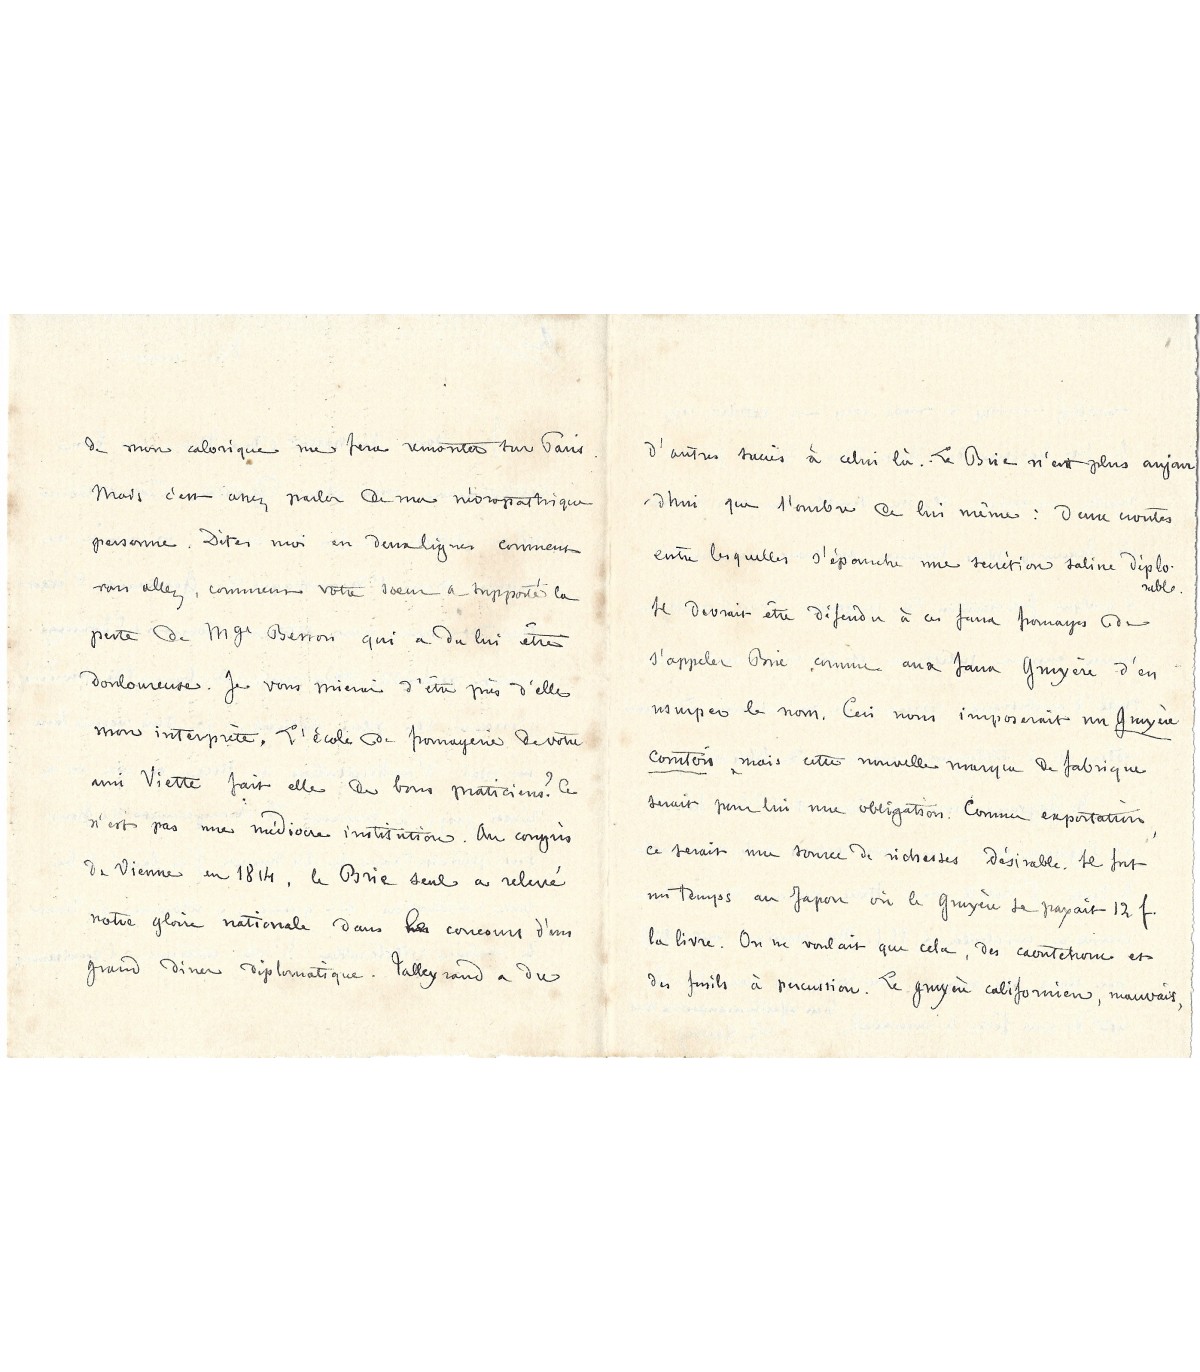 de mon calorique me fera remonter sur Paris.
Mais c'est assez parler de ma névropathique
personne. Dites moi en deux lignes comment
vous allez, comment votre soeur a supporté la
perte de Mgr Besson qui a du lui être
douloureuse. Je vous prierai d'être près d'elle
mon interprète. L'école de fromagerie de votre
ami Viette fait elle de bons praticiens? Ce
n'est pas une médiocre institution. Au congrès
de Vienne en 1814, le Brie seul a relevé
notre gloire nationale dans concours d'un
grand diner diplomatique. Talleyrand a du
d'autres succès à celui là. Le Brie n'est plus aujour
d'hui que l'ombre de lui même : deux croutes
entre lesquelles s'épanche une secrétion saline déplo-
rable.
Il devrait être défendu à ces faux fromages de
s'appeler Brie, comme aux faux Gruyère d'en
usurper le nom. Ceci nous imposerait un Gruyère
comtois, mais cette nouvelle marque de fabrique
serait pour lui une obligation. Comme exportation,
ce serait une source de richesses désirable. Il fut
un temps au Japon où le Gruyère se payait 12 f.
la livre. On ne voulait que cela, des caoutchouc et
des fusils à percussion. Le gruyère californien, mauvais,